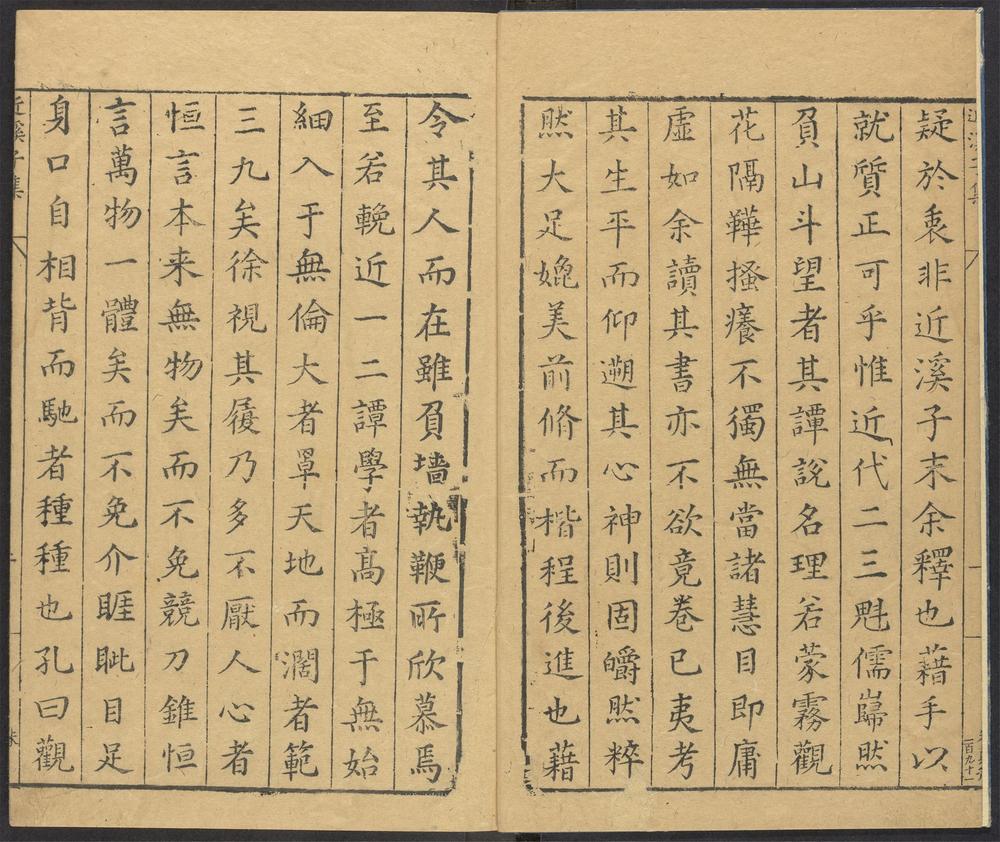 疑於衷非近溪子末余釋也藉手以
就質正可乎惟近代二三魁儒巋然
負山斗望者其譚說名理若蒙霧觀
花隔鞾搔癢不獨無當諸慧目即庸
虛如余讀其書亦不欲竟卷已夷考
其生平而仰遡其心神則固皭然粹
然大足媲美前脩而楷程後進也藉
令其人而在雖負墻執鞭所欣慕焉
至若輓近一二譚學者高極于無始
細入于無倫大者罩天地而濶者範
三九矣徐視其履乃多不厭人心者
恒言本来無物矣而不免競刀錐恒
言萬物一體矣而不免介睚眦目足
身口自相背而馳者種種也孔曰觀
近溪子集
一百九十一